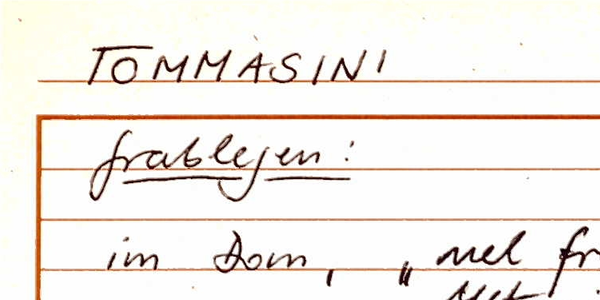 TOMMASINI
frablejen:
im Dom, „nel fr